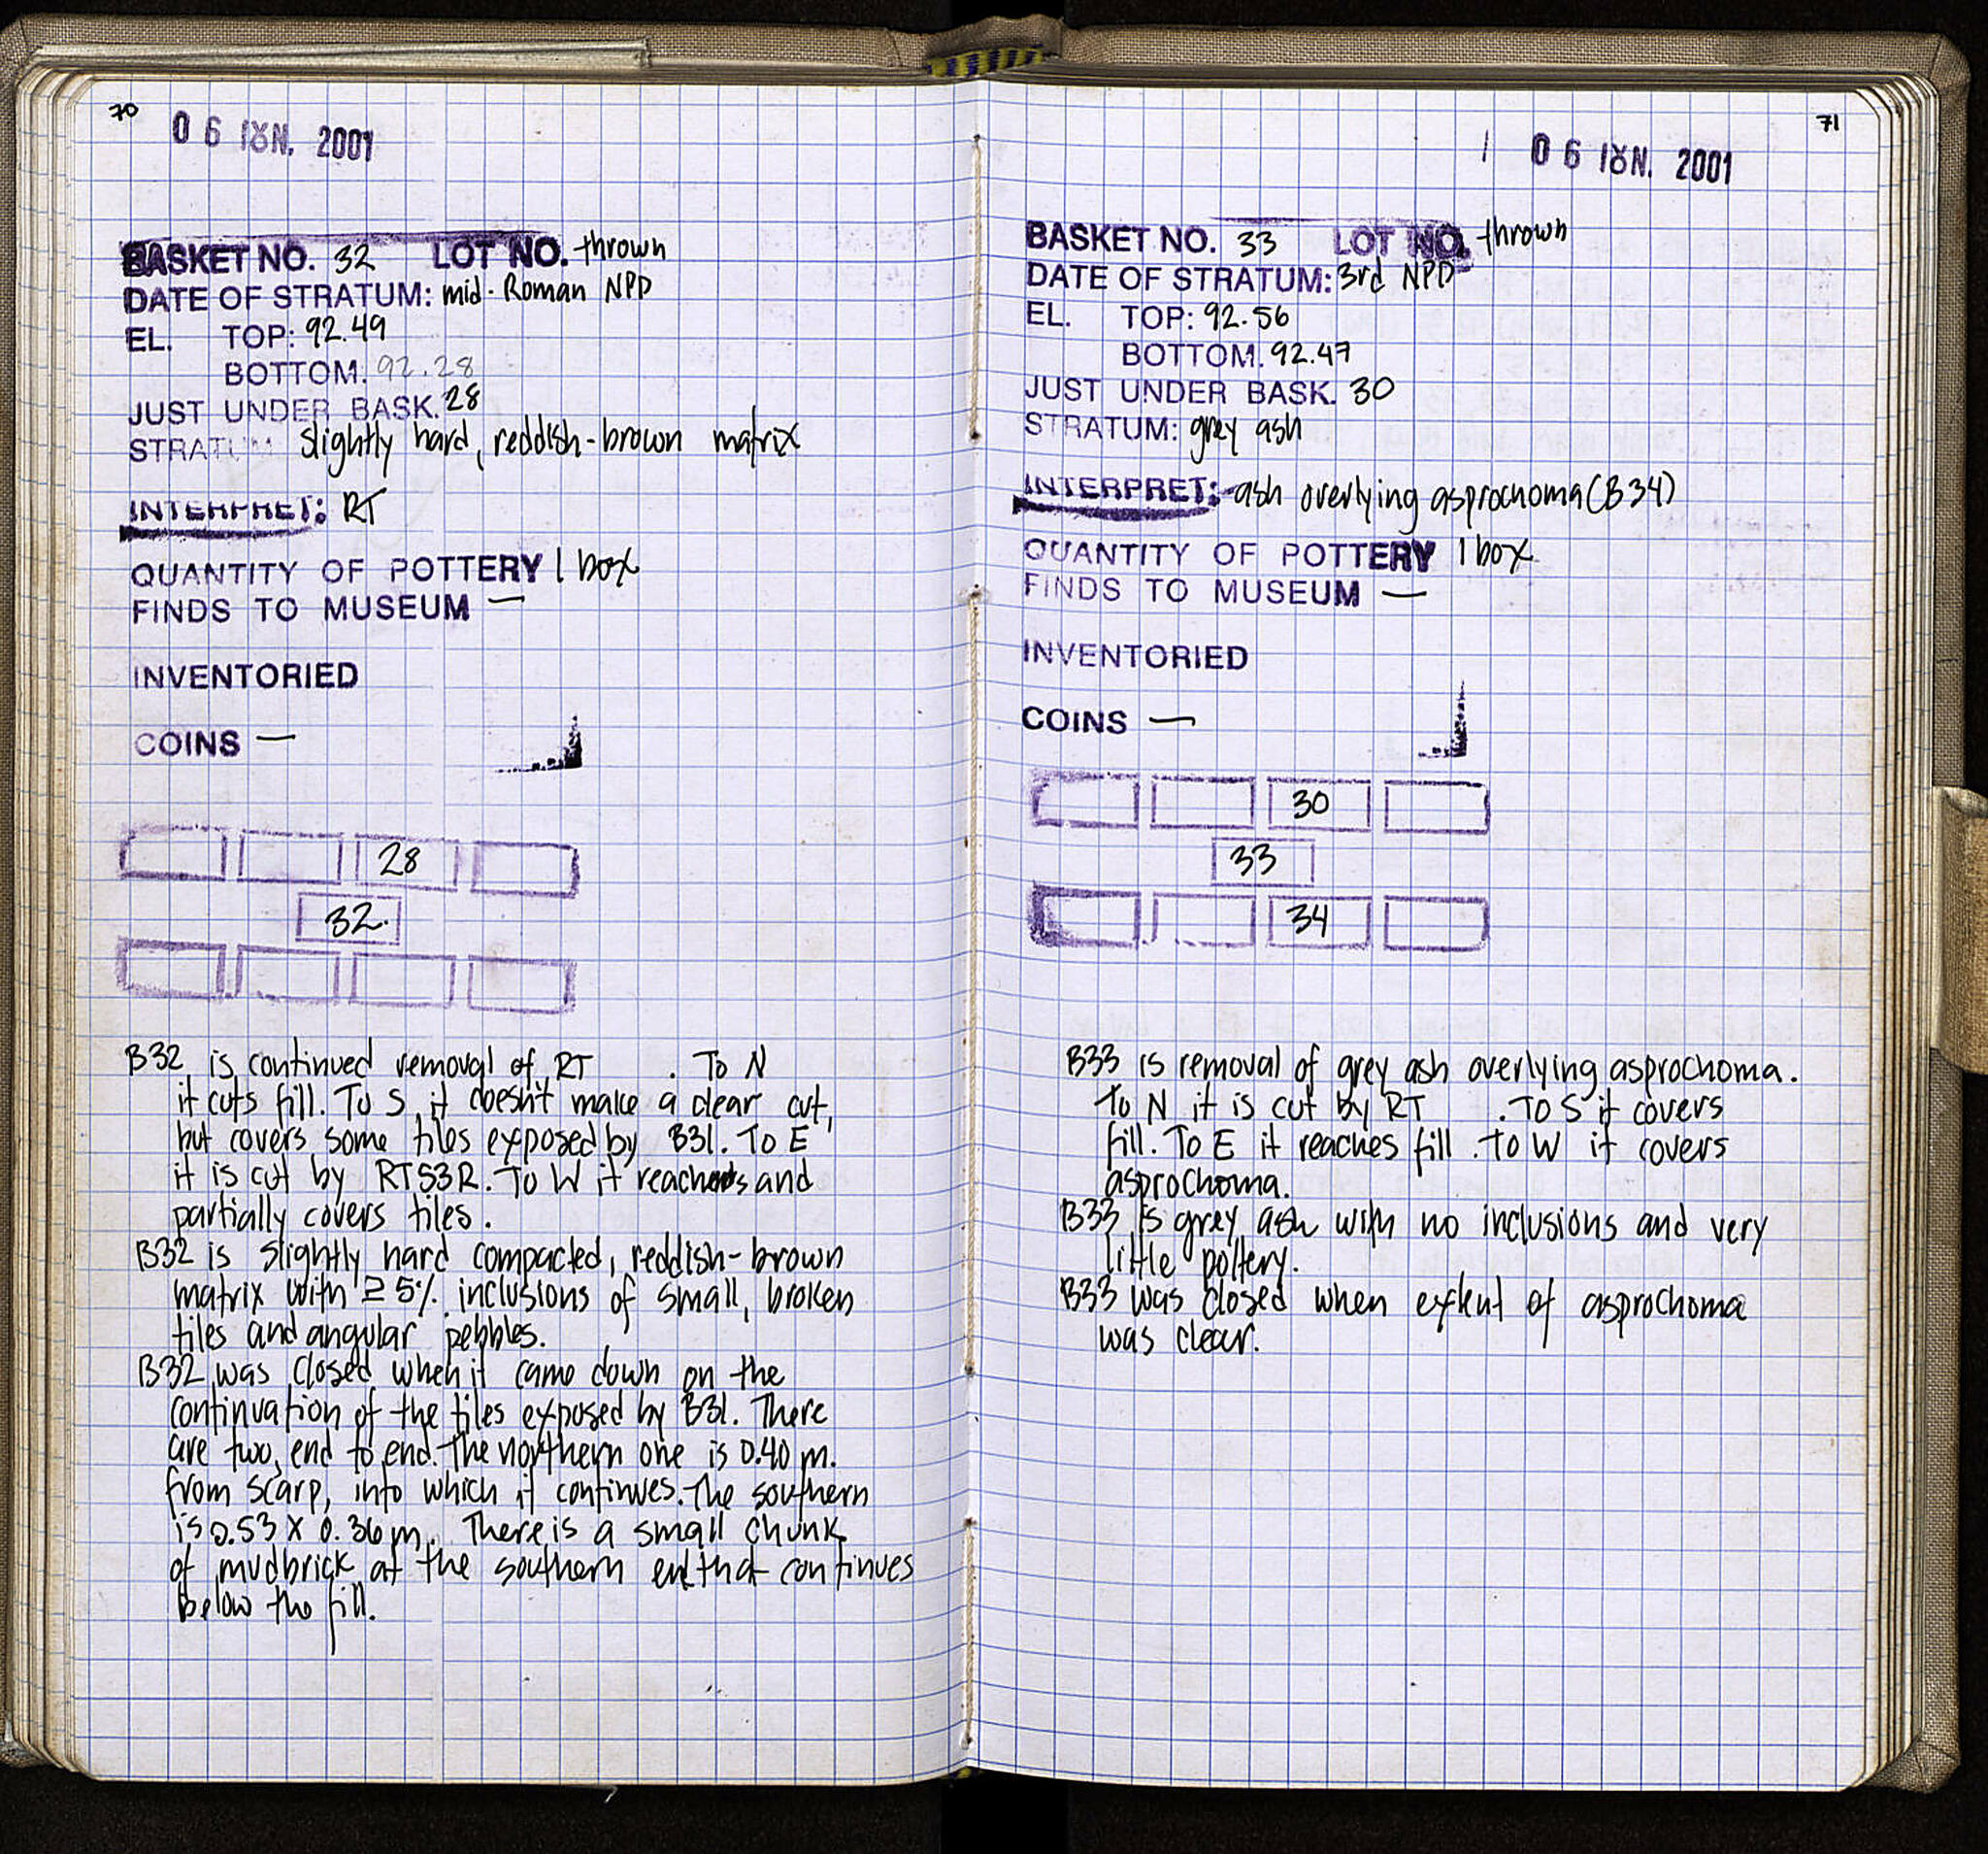 70
06 ΙȢΝ. 2001
BASKET NO. 32 LOT NO. thrown
DATE OF STRATUM: mid-Roman NPD
EL. TOP: 92.49
BOTTOM. 92.28
JUST UNDER BASK. 28
STRATUM slightly hard, reddish-brown matrix
INTERPRET: RT
QUANTITY OF POTTERY 1 box
FINDS TO MUSEUM —
INVENTORIED
COINS —
28
32.
B32 is continued removal of RT . To N
it cuts fill. To S, it doesn't make a clear cut,
but covers some tiles exposed by B31. To E
it is cut by RT53R. To W it reaches and
partially covers tiles.
B32 is slightly hard compacted, reddish-brown
matrix with ≥ 5% inclusions of small, broken
tiles and angular pebbles.
B32 was closed when it came down on the
continuation of the tiles exposed by B31. There
are two, end to end. The northern one is 0.40 m.
from scarp, into which it continues. The southern
is 0.53 X 0.36 m. There is a small chunk
of mudbrick at the southern end that continues
Below the fill.
71
06 ΙȢΝ. 2001
BASKET NO. 33 LOT NO. thrown
DATE OF STRATUM: 3rd NPD
EL. TOP: 92.56
BOTTOM. 92.47
JUST UNDER BASK. 30
STRATUM: grey ash
INTERPRET: ash overlying asprochoma (B34)
QUANTITY OF POTTERY 1 box
FINDS TO MUSEUM —
INVENTORIED
COINS —
30
33
34
B33 is removal of grey ash overlying asprochoma.
To N it is cut by RT . To S it covers
fill. To E it reaches fill. To W it covers
asprochoma.
B33 is grey ash with no inclusions and very
little pottery.
B33 was closed when extent of asprochoma
was clear.